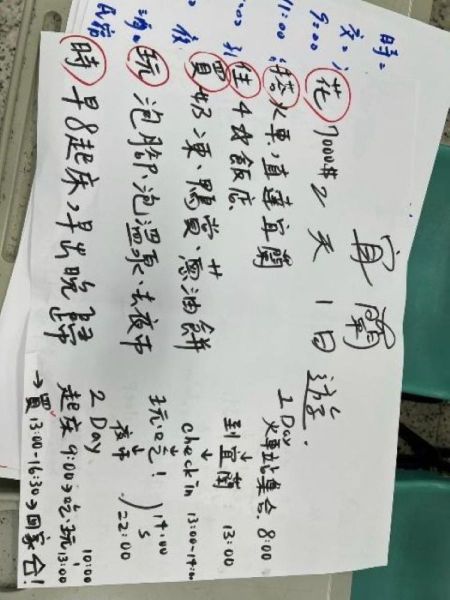 宜蘭
花 7000# 2天1日遊.
搭火車,直達宜蘭
住 飯店.
買奶凍、鴨賞、蔥油餅
玩 泡腳、泡溫泉、去夜市
時 早8起床,早出晚歸
1 Day
火車站集合. 8:00
↓
到宜蘭 13:00
↓
check in 13:00~14:00
玩 吃! 14:00
↓
夜市 22:00
2 Day
起床 9:00→吃、玩! 10:00 13:00
→買 13:00-16:30→回家 !
時:
9:00
11:00